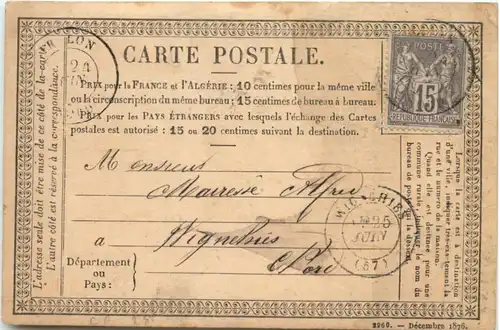 LON
24
JUIN
CARTE POSTALE.
POSTE
15
REPUBLIQUE FRANÇAISE
PRIX pour la FRANCE et l'ALGÉRIE : 10 centimes pour la même ville
ou la circonscription du même bureau ; 15 centimes de bureau à bureau.
PRIX pour les PAYS ÉTRANGERS avec lesquels l'échange des Cartes
postales est autorisé : 15 ou 20 centimes suivant la destination.
L'adresse seule doit être mise de ce côté de la carte.
L'autre côté est réservé à la correspondance.
Monsieur
Mairesse Alfred
a Wignehies
Nord
WIGNEHIES
25
JUIN
(57)
Département
ou
Pays :
Lorsque la carte est à destination
d'une ville, indiquer très exactement la
rue et le numéro de la maison.
Quand elle est destinée pour une
commune rurale, indiquer le nom du
bureau de poste qui la dessert.
2960. — Décembre 1876.